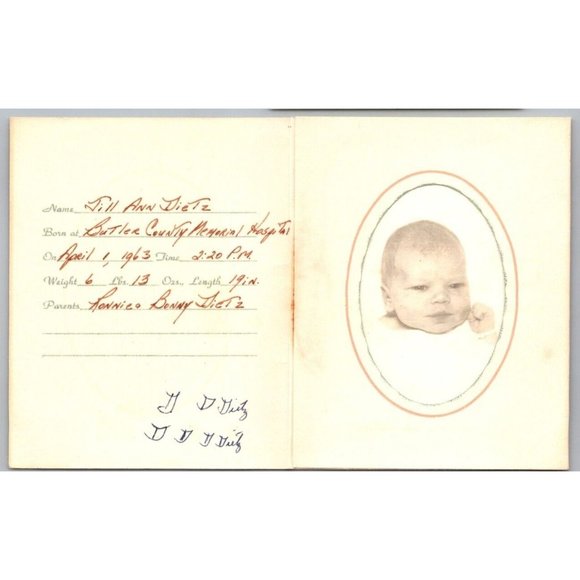 Name Jill Ann Dietz
Born at Butler County Memorial Hospital
On April 1, 1963 Time 2:20 P.M.
Weight 6 Lbs. 13 Ozs., Length 19 in.
Parents Ronnie & Bonny Dietz
D D. Dietz
D D D Dietz